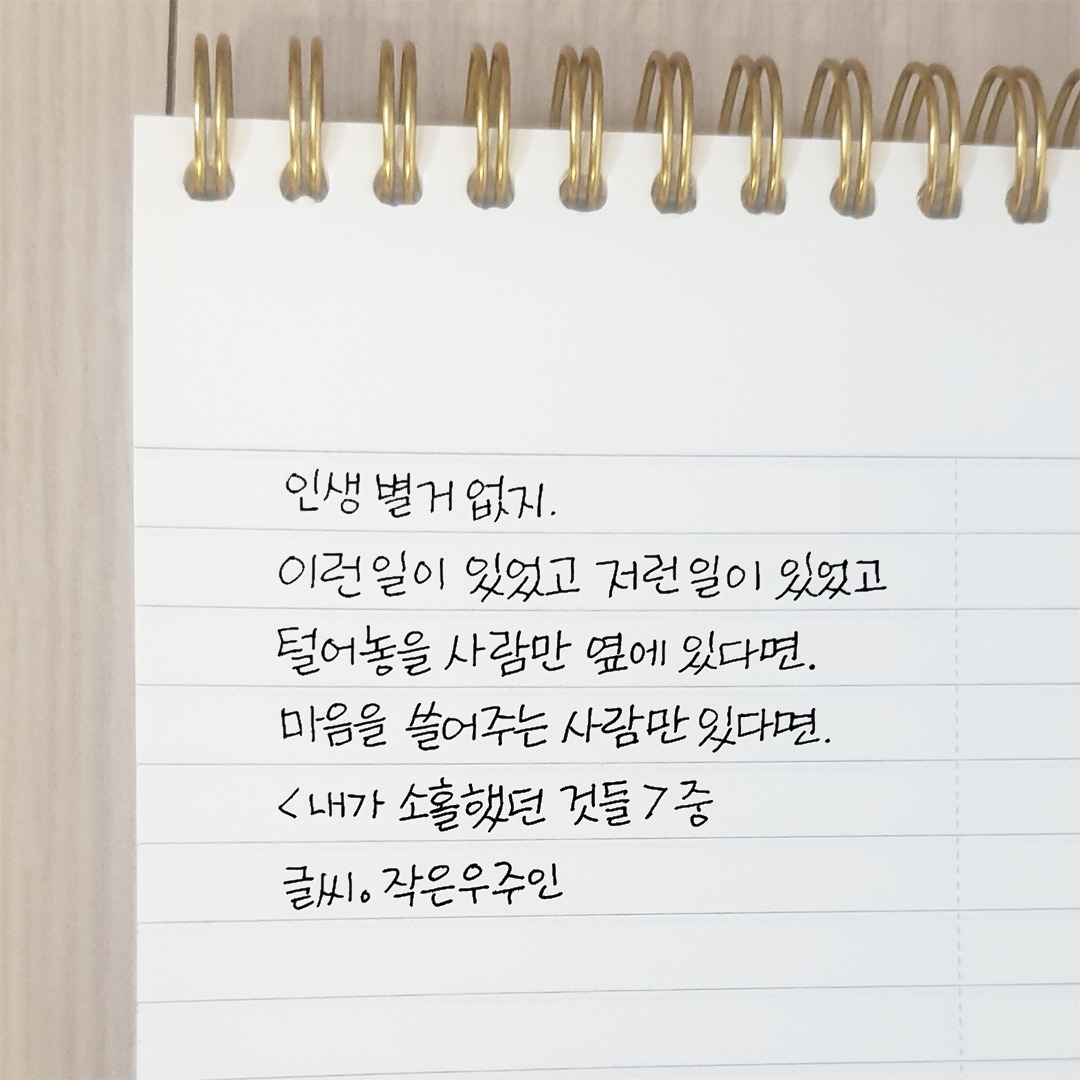 인생 별거 없지.
이런일이 있었고 저런일이 있었고
털어놓을 사람만 옆에 있다면.
마음을 쓸어주는 사람만 있다면.
<내가 소홀했던 것들> 중
글씨。작은우주인